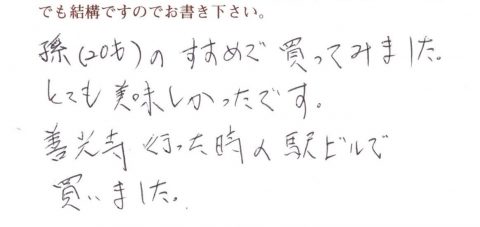 でも結構ですのでお書き下さい。
孫(20才)のすすめで買ってみました。
とても美味しかったです。
善光寺行った時の駅ビルで
買いました。